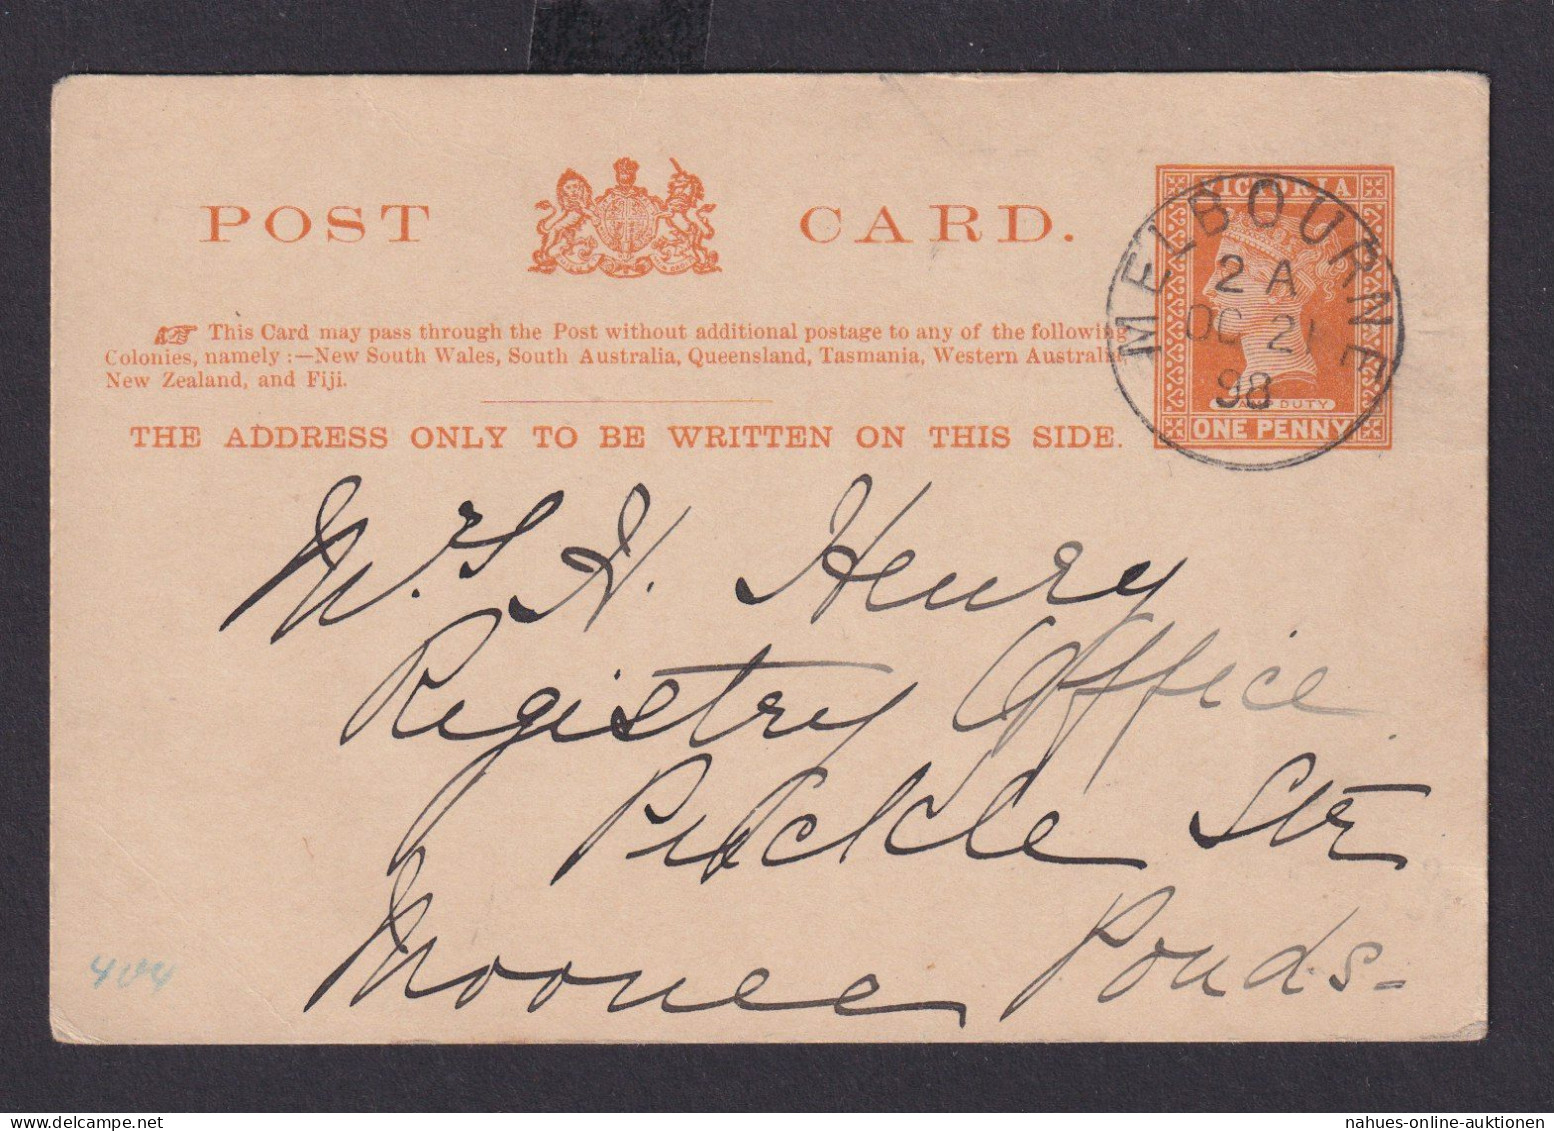 POST CARD.
VICTORIA
MELBOURNE
2 A
OC 21
98
DUTY
ONE PENNY
This Card may pass through the Post without additional postage to any of the following
Colonies, namely :—New South Wales, South Australia, Queensland, Tasmania, Western Australia,
New Zealand, and Fiji.
THE ADDRESS ONLY TO BE WRITTEN ON THIS SIDE.
Mrs H. Henry
Registry Office
Puckle Str
Moonee Ponds
404
nahues-online-auktionen